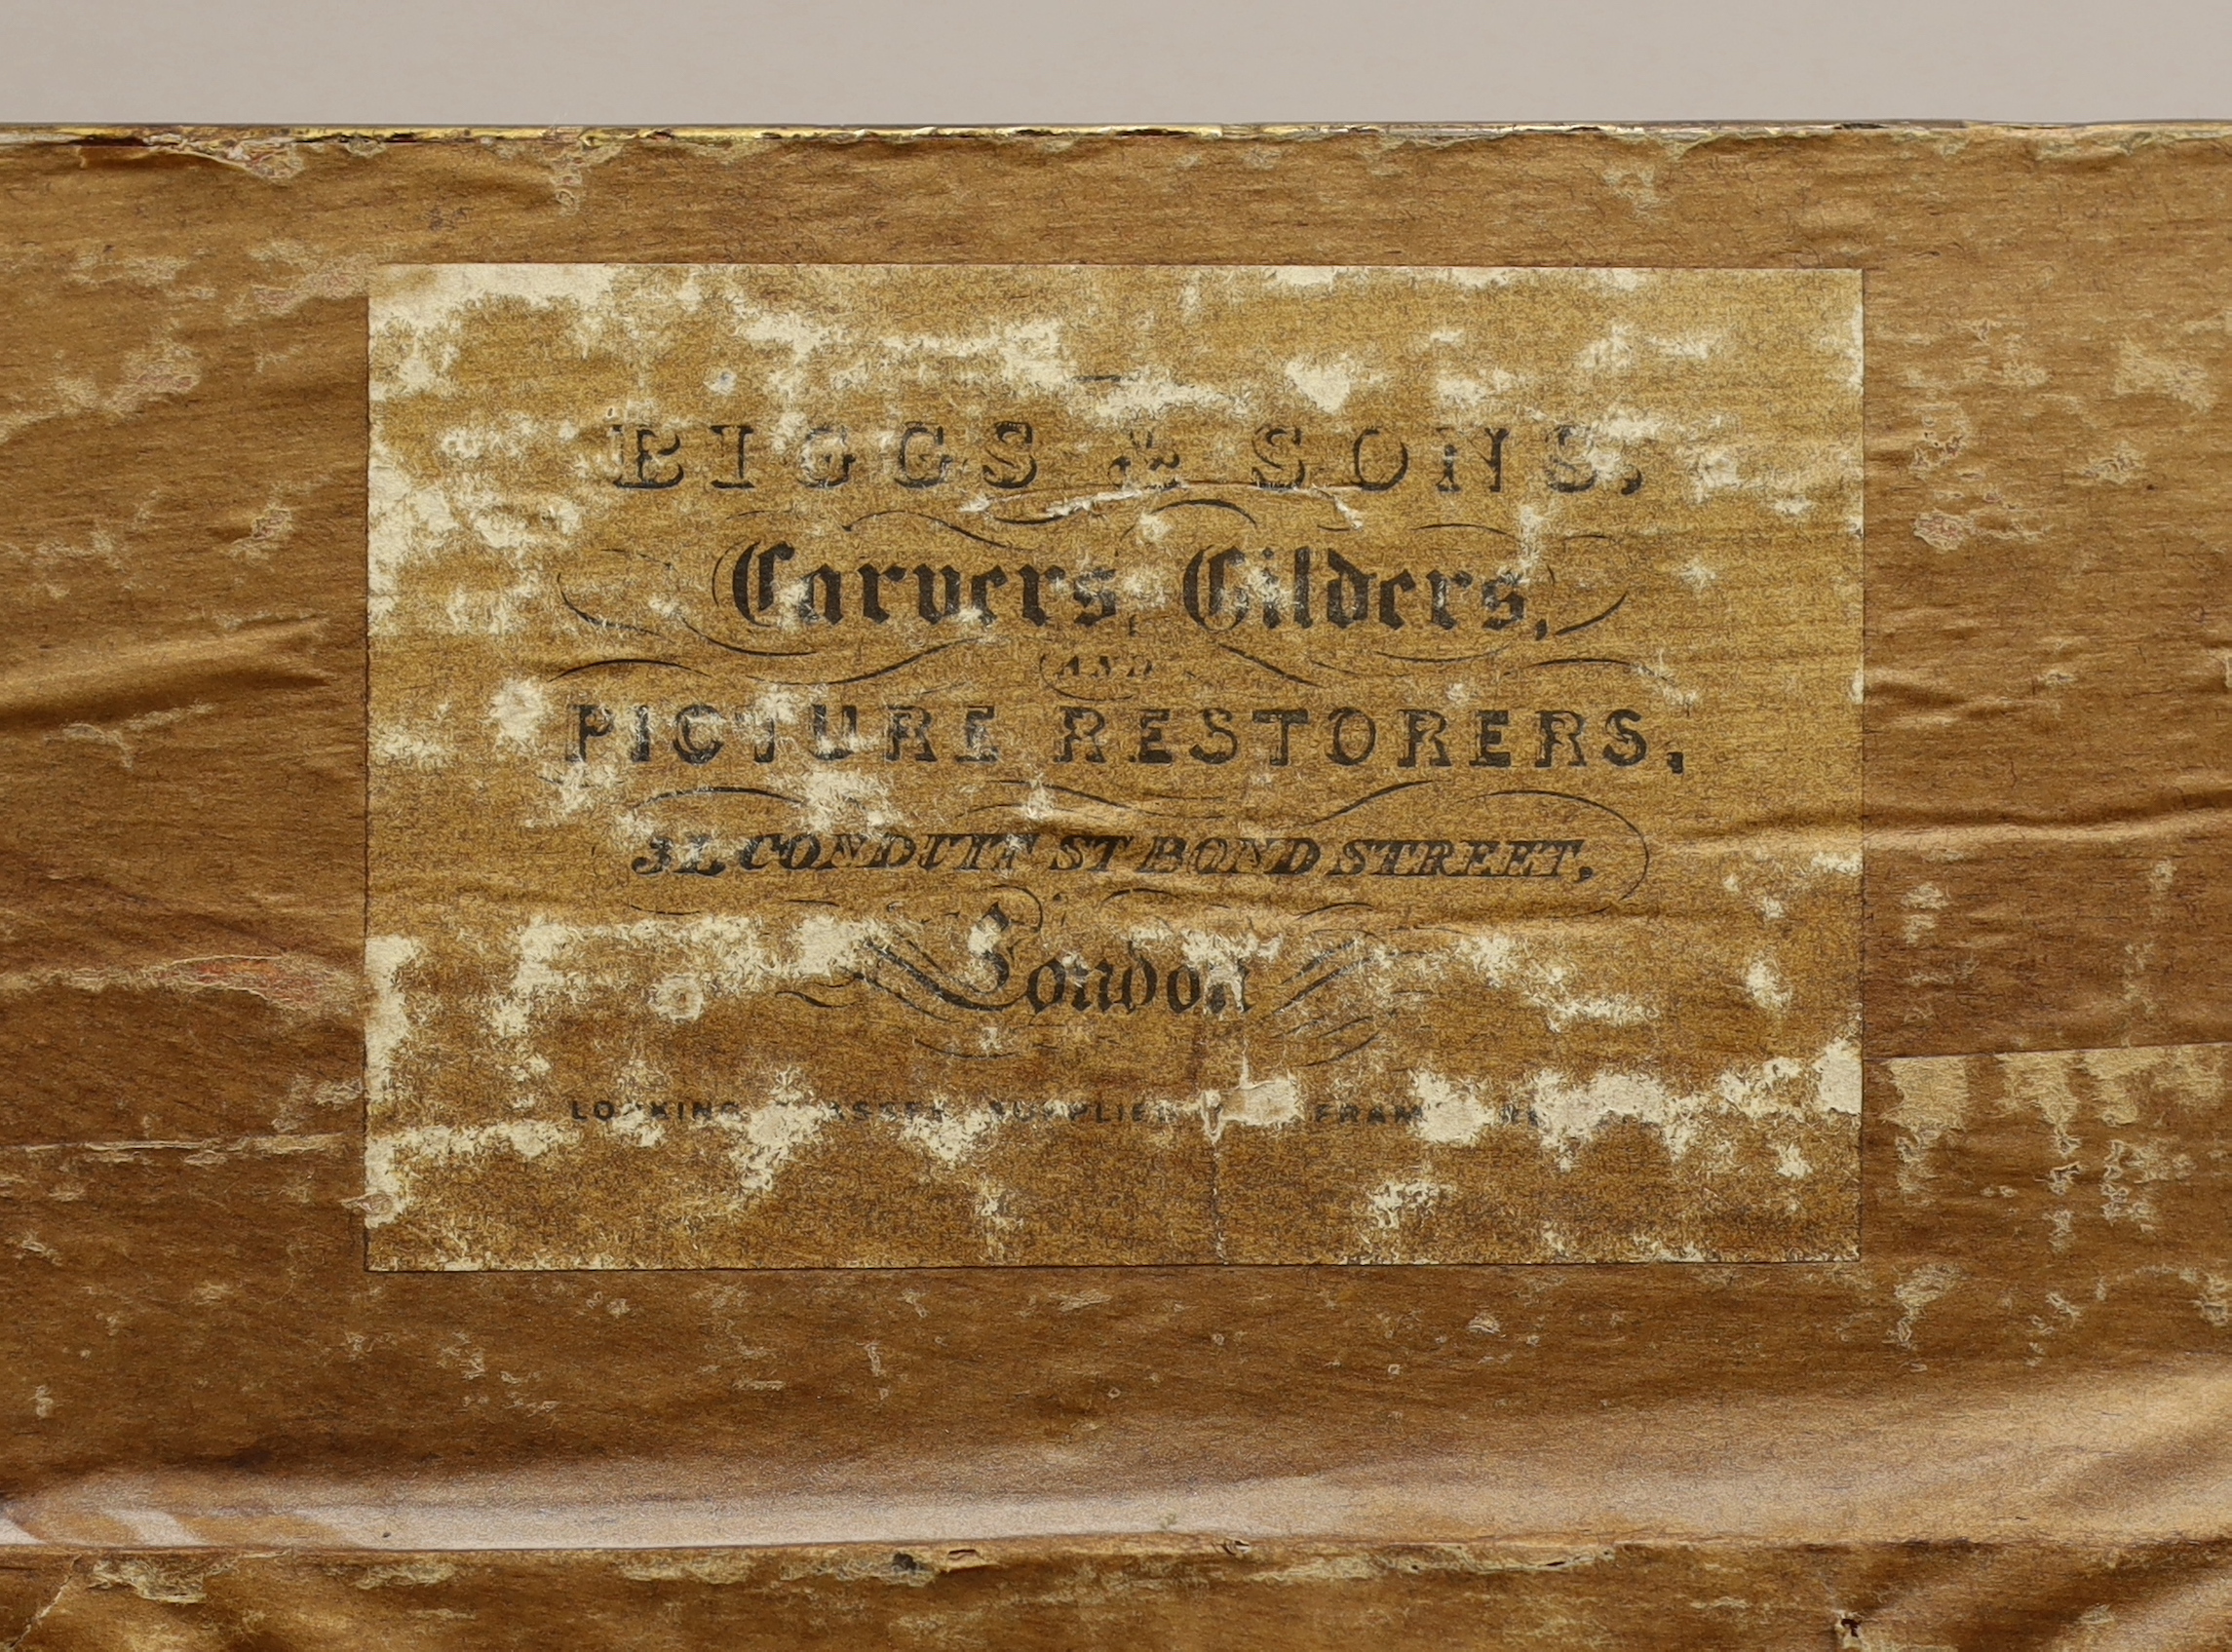 BIGGS & SONS,
Carvers, Gilders,
AND
PICTURE RESTORERS,
CONDUIT ST BOND STREET,
London
LOOKING GLASSES SUPPLIED